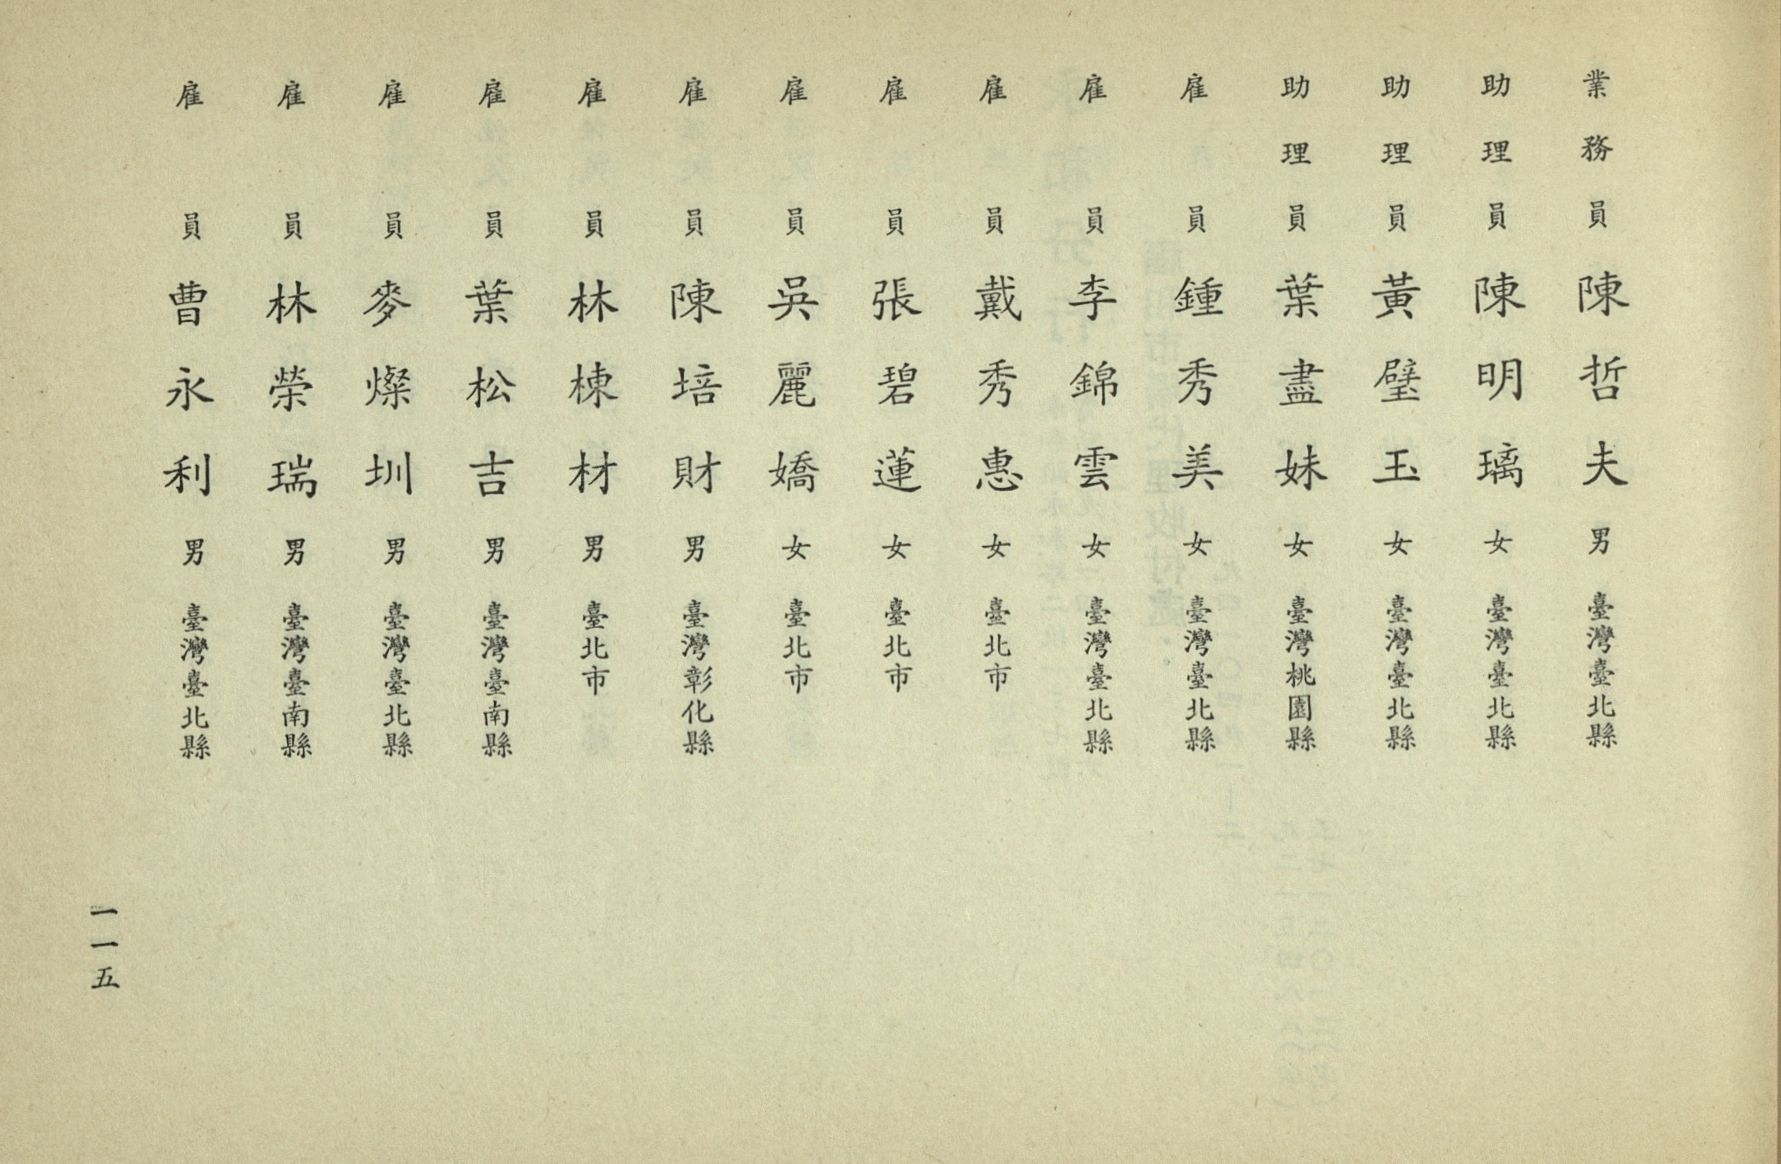 業務員 陳哲夫 男 臺灣臺北縣
助理員 陳明璃 女 臺灣臺北縣
助理員 黃璧玉 女 臺灣臺北縣
助理員 葉盡妹 女 臺灣桃園縣
雇員 鍾秀美 女 臺灣臺北縣
雇員 李錦雲 女 臺灣臺北縣
雇員 戴秀惠 女 臺北市
雇員 張碧蓮 女 臺北市
雇員 吳麗嬌 女 臺北市
雇員 陳培財 男 臺灣彰化縣
雇員 林棟材 男 臺北市
雇員 葉松吉 男 臺灣臺南縣
雇員 麥燦圳 男 臺灣臺北縣
雇員 林榮瑞 男 臺灣臺南縣
雇員 曹永利 男 臺灣臺北縣
一一五